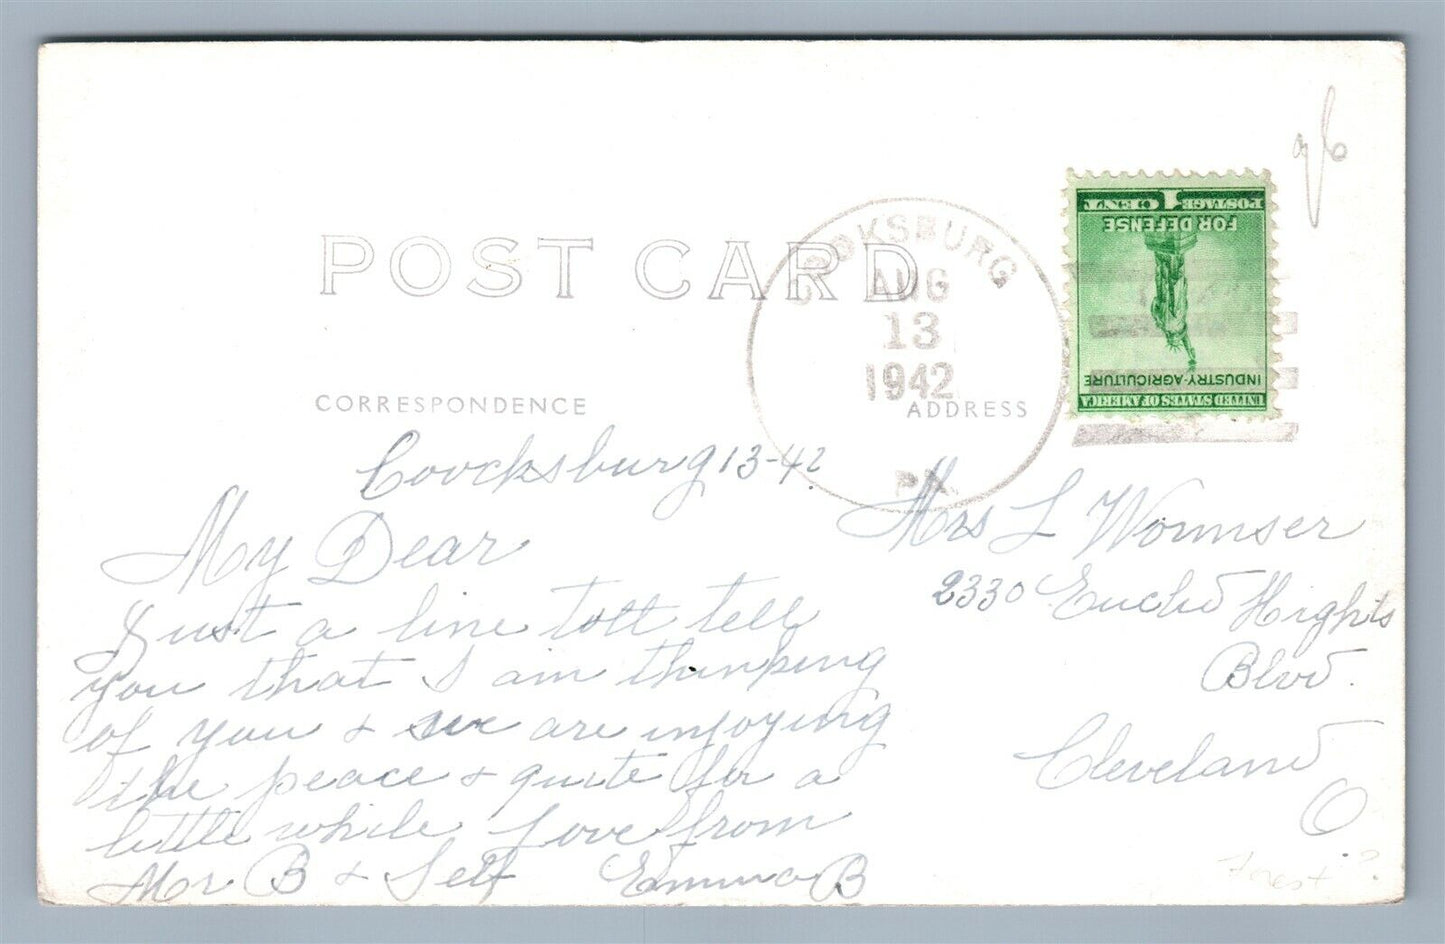 POST CARD
COOKSBURG
AUG
13
1942
PA.
UNITED STATES OF AMERICA
INDUSTRY-AGRICULTURE
FOR DEFENSE
POSTAGE 1 CENT
CORRESPONDENCE
ADDRESS
Coocksburg 13-42
My Dear
Just a line tott tell
you that I am thinking
of you & we are injoying
the peace & quite for a
little while Love from
Mr B & Self Emma B
Mrs L Wormser
2330 Euclid Hights
Blvd.
Cleveland
O
Forest?